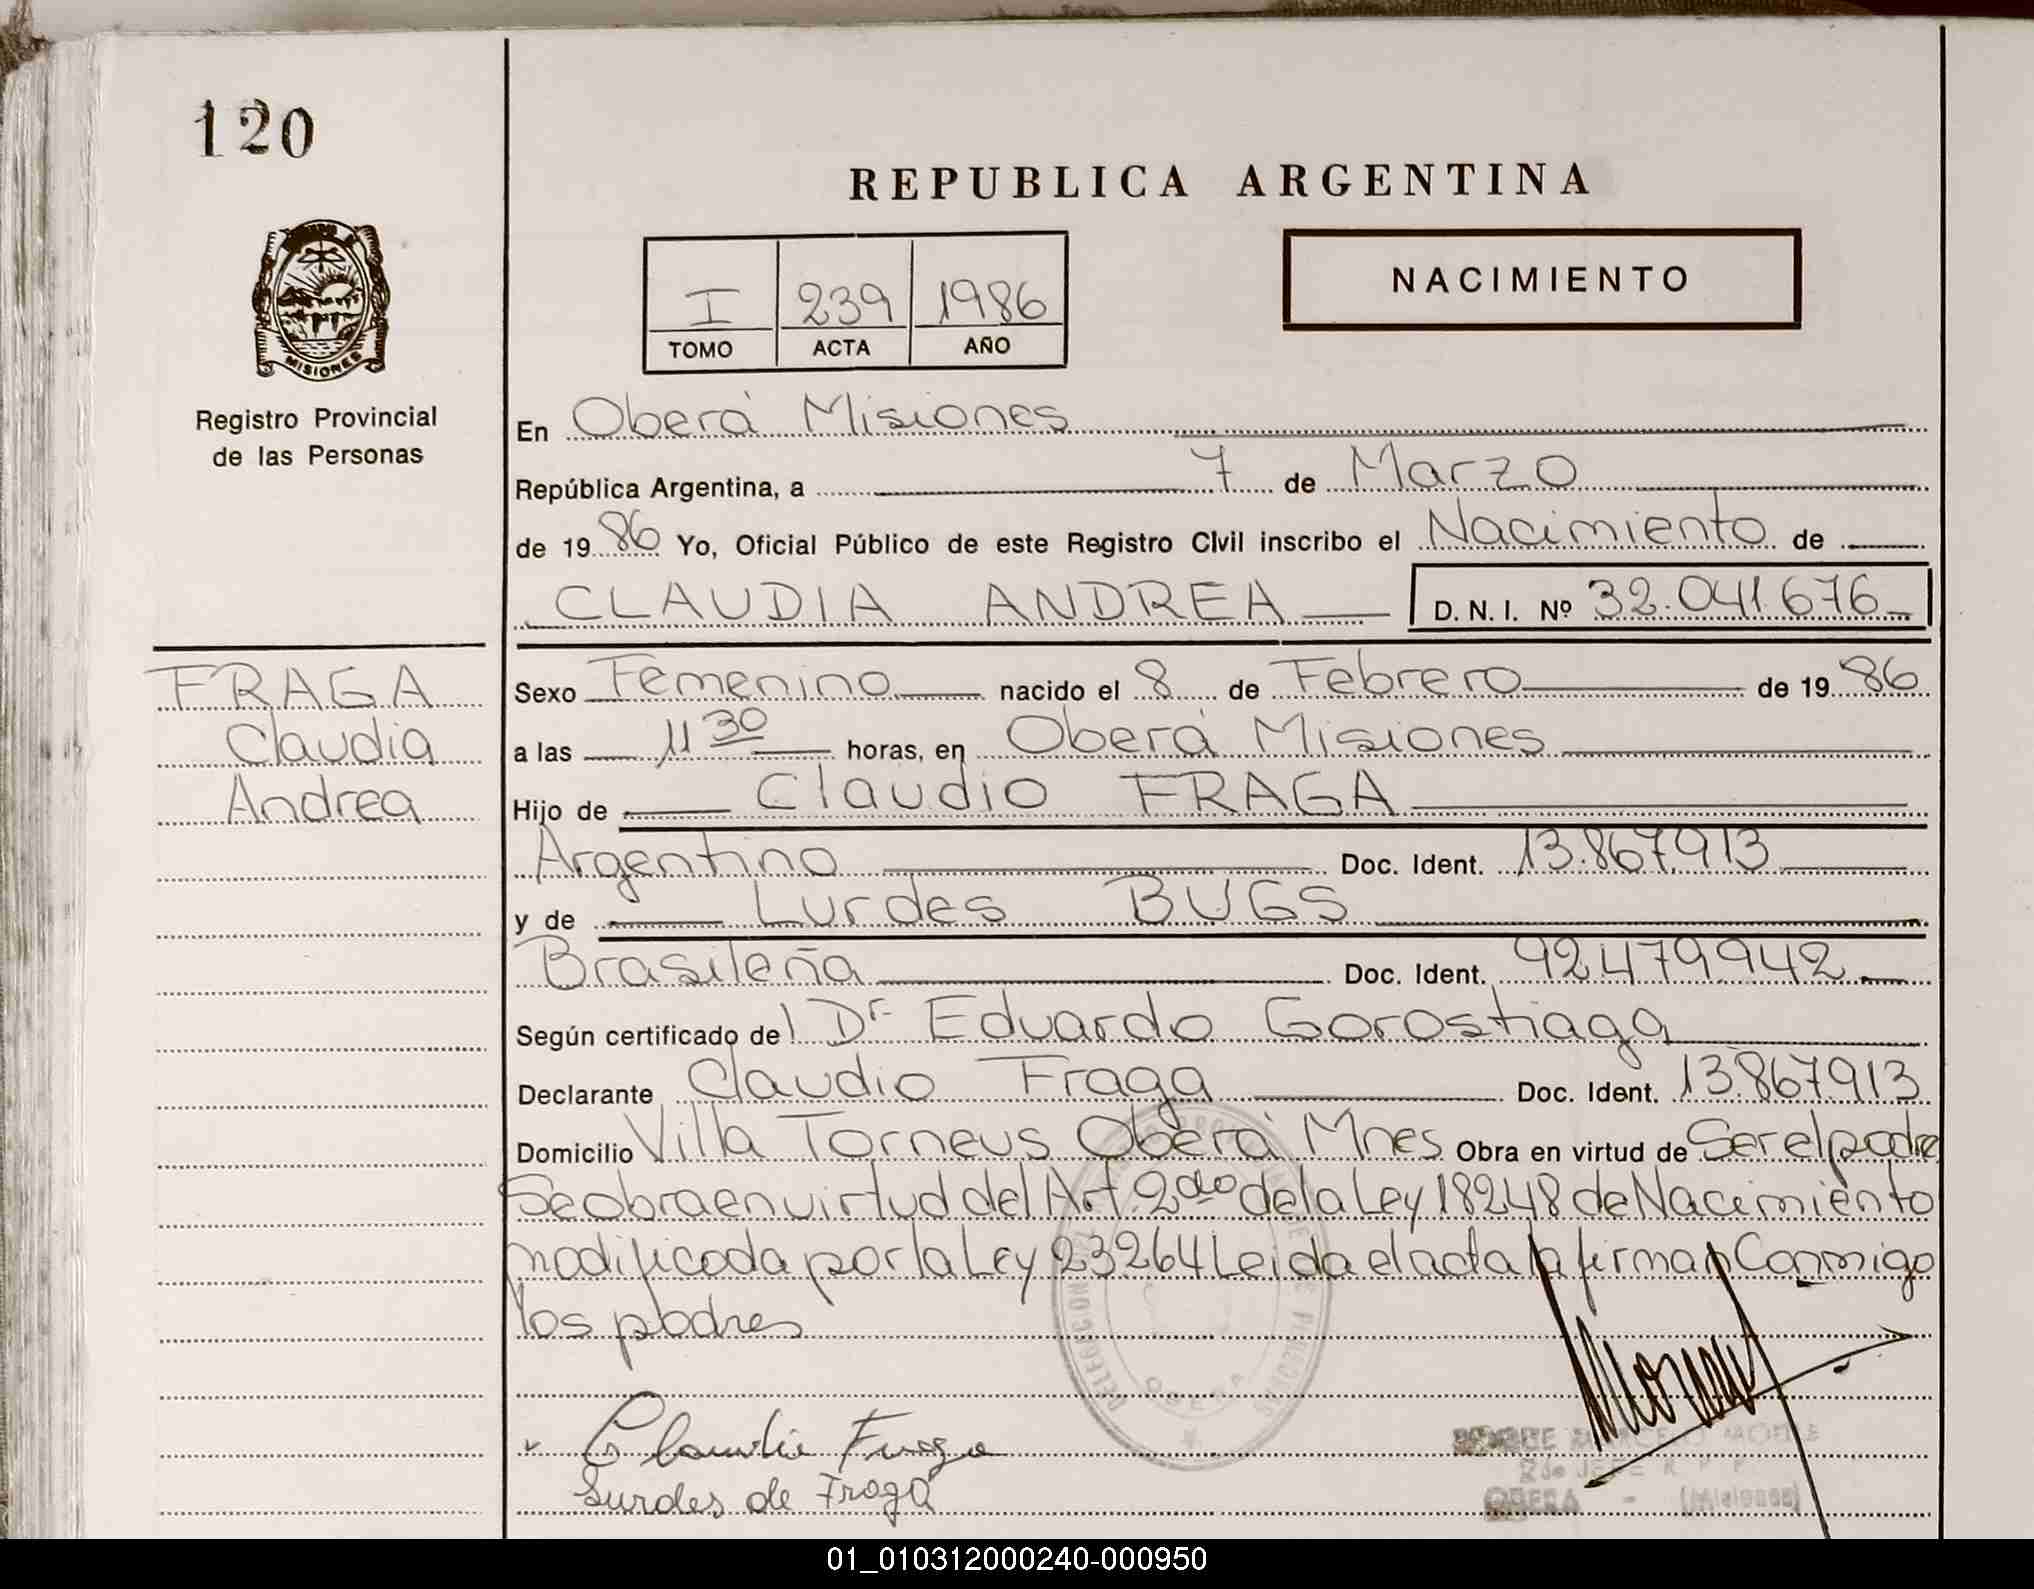 120
REPUBLICA ARGENTINA
NACIMIENTO
I 239 1986
TOMO ACTA AÑO
MISIONES
Registro Provincial
de las Personas
En Oberá Misiones
República Argentina, a 7 de Marzo
de 1986 Yo, Oficial Público de este Registro Civil inscribo el Nacimiento de
CLAUDIA ANDREA D. N. I. Nº 32.041.676
FRAGA
Claudia
Andrea
Sexo Femenino nacido el 8 de Febrero de 1986
a las 11 30 horas, en Oberá Misiones
Hijo de Claudio FRAGA
Argentino Doc. Ident. 13.867.913
y de Lurdes BUGS
Brasileña Doc. Ident. 92.479.942
Según certificado del Dr Eduardo Gorostiaga
Declarante Claudio Fraga Doc. Ident. 13.867.913
Domicilio Villa Torneus Oberá Mnes Obra en virtud de Ser el padre
Se obra en virtud del Art. 2do de la Ley 18248 de Nacimiento
modificada por la Ley 23264 Leida el acta la firman Conmigo
los padres
Claudio Fraga
Lurdes de Fraga
OBERA
OBERA - (Misiones)
01_010312000240-000950